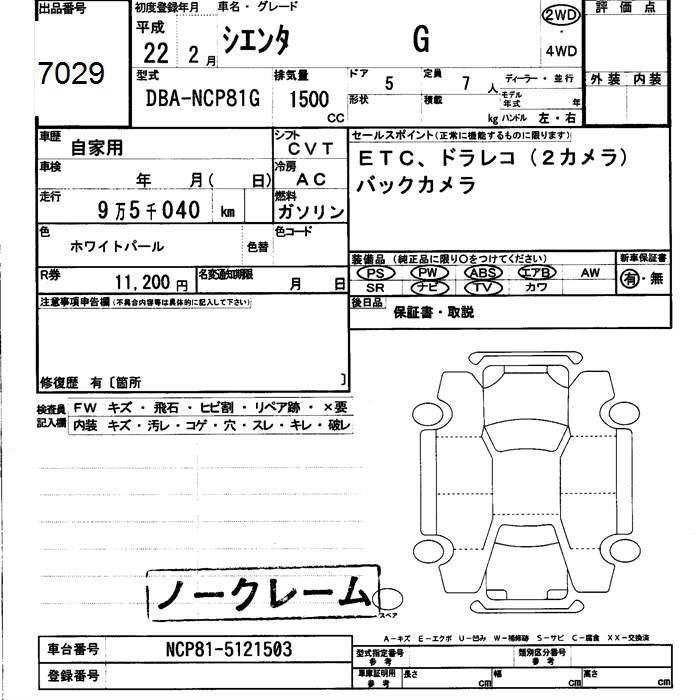 出品番号
7029
初度登録年月 車名・グレード
平成
22 2月
シエンタ G
2WD
・
4WD
評価点
外装 内装
型式
DBA-NCP81G
排気量
1500
CC
ドア 5
定員 7 人
形状
積載 kg
ディーラー・並行
モデル
年式 年
ハンドル 左・右
車歴
自家用
シフト
CVT
車検
年 月( 日)
冷房
AC
走行
9万5千040 km
燃料
ガソリン
色
ホワイトパール
色替
色コード
R券
11,200円
名変通知期限
月 日
セールスポイント(正常に機能するものに限ります)
ETC、ドラレコ(2カメラ)
バックカメラ
装備品(純正品に限り○をつけてください)
PS PW ABS エアB AW
SR ナビ TV カワ
新車保証書
有・無
後日品
保証書・取説
注意事項申告欄(不具合内容等は具体的に記入して下さい)
修復歴 有〔箇所 〕
検査員
記入欄
FW キズ・飛石・ヒビ割・リペア跡・×要
内装 キズ・汚レ・コゲ・穴・スレ・キレ・破レ
ノークレーム
スペア
A-キズ E-エクボ U-凹み W-補修跡 S-サビ C-腐食 XX-交換済
車台番号
NCP81-5121503
登録番号
型式指定番号
参考
類別区分番号
参考
車庫証明用
参考
長さ cm
幅 cm
高さ cm